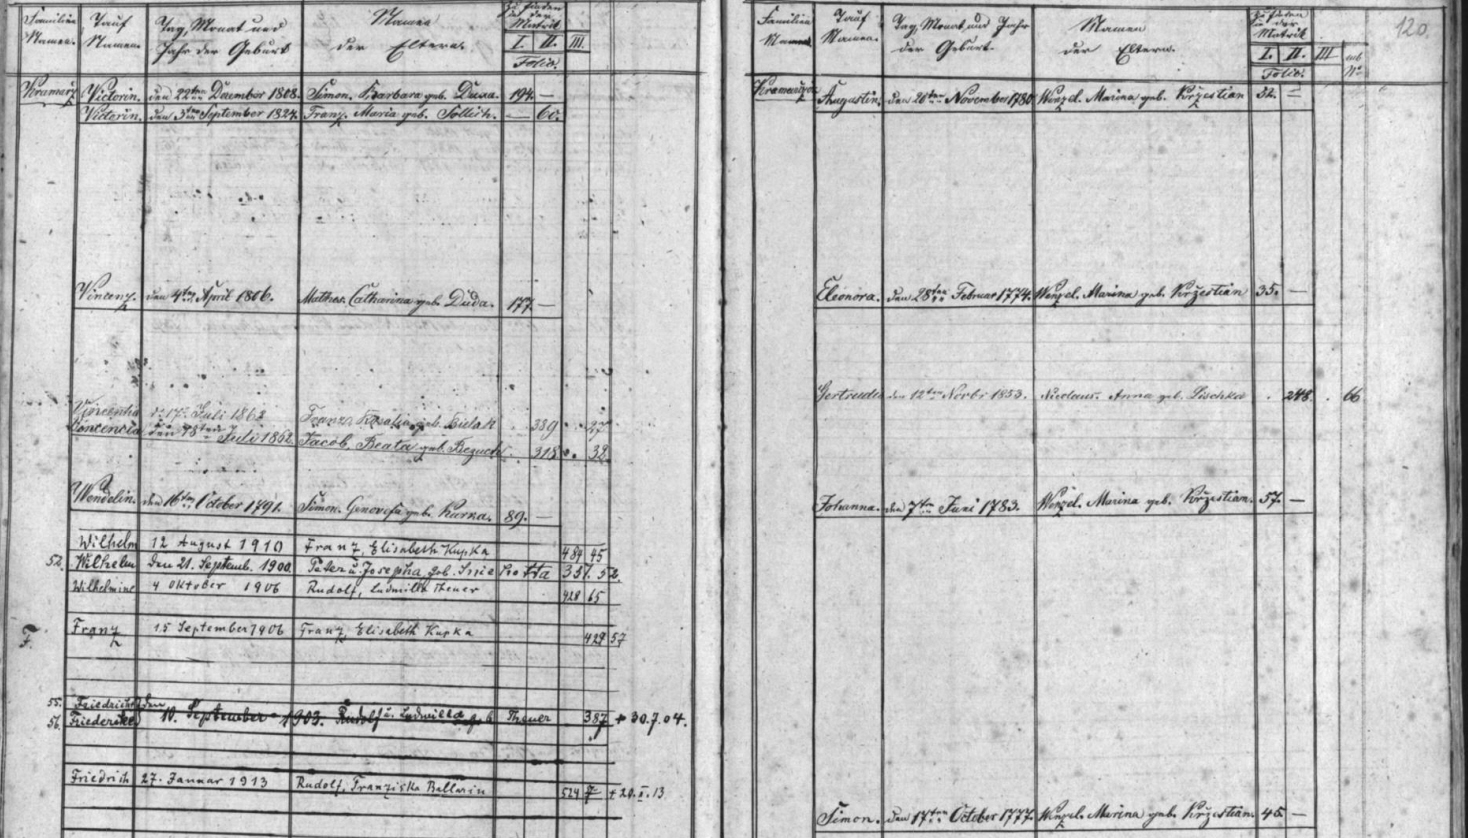 Familien Namen. Tauf Namen. Tag, Monat und Jahr der Geburt Namen der Eltern. Zu finden in der Matrik I. II. III. Folio.
Victorin. den December 1808. Simon, Barbara geb. Duxa. 194. —
Victorin. den September 1824. Franz, Maria geb. — 60.
Vincenz. den 4ten April 1806. Mathes. Catharina geb. Duda. 177 —
Juli 1862 Franz Rosalia geb. 389 27
Juli 1862 Jacob, Beata geb. 318 32
Wendelin. den 16ten October 1791. Simon, Genovefa geb. Kurka. 89. —
Wilhelm 12 August 1910 Franz, Elisabeth Kupka 489 45
52. Wilhelm den 21. Septemb. 1900 Peter u. Josepha geb. 357. 52
Wilhelmine 4 Oktober 1906 Rudolf, Ludmilla Theuer 428 65
F. Franz 15 September 1906 Franz, Elisabeth Kupka 429 57
55. Friedrich den
56. Friederike 10. September 1903. Rudolf u. Ludmilla geb Theuer 387 + 30.7.04.
Friedrich 27. Jannar 1913 Rudolf, Franziska Ballarin 524 7 + 20.I.13
120.
Familien Namen Tauf Namen. Tag, Monat und Jahr der Geburt. Namen der Eltern. Zu finden in der Matrik I. II. III Folio. No.
Augustin. den November 1780 Wenzel. Marina geb. Kržestian 52. —
Eleonora. den 28ten Februar 1774. Wenzel. Marina geb. Kržestian 35. —
Gertrudis den 12ten Novbr 1853. Nicolaus. Anna geb. Lischka . 248. . 66
Johanna. den 7ten Juni 1783. Wenzel. Marina geb. Kržestian. 57. —
Simon. den 17ten October 1777. Wenzel. Marina geb. Kržestian 45. —